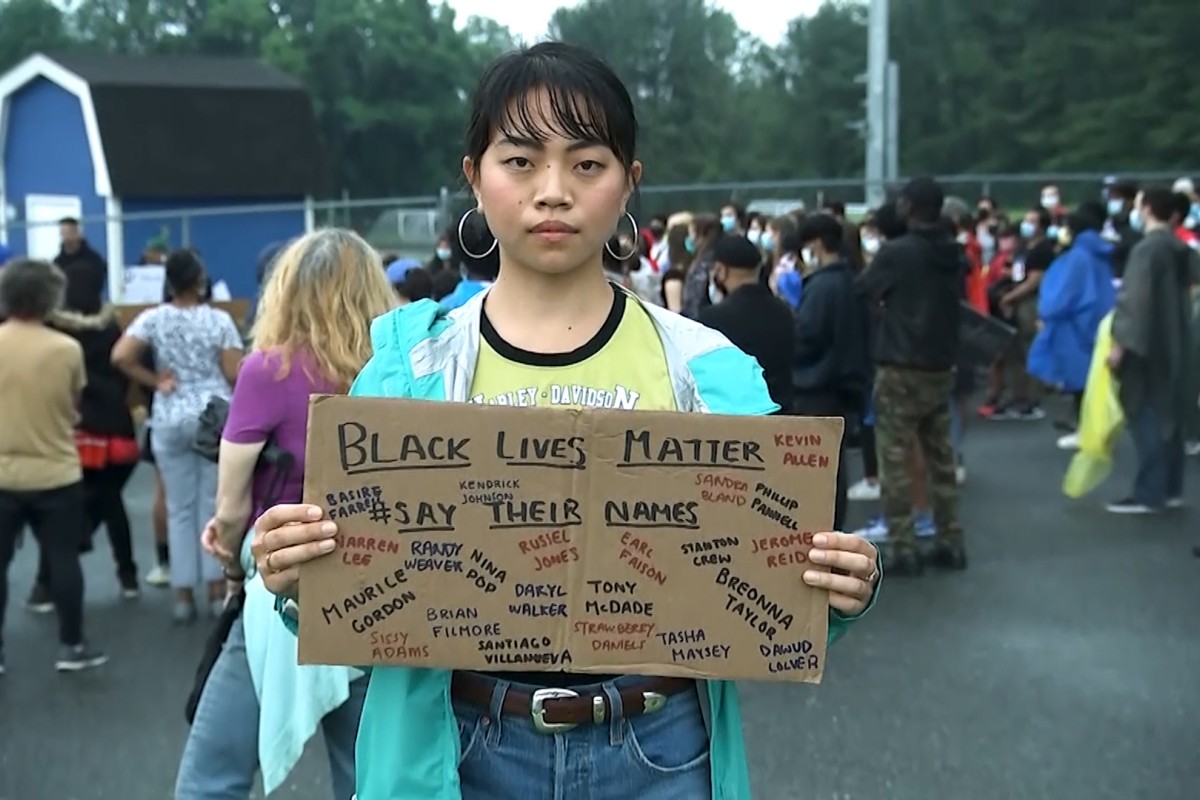 HARLEY-DAVIDSON
BLACK LIVES MATTER
KEVIN
ALLEN
BASIRE
FARRELL
KENDRICK
JOHNSON
SANDRA
BLAND
PHILLIP
PANNELL
#SAY THEIR NAMES
WARREN
LEE
RANDY
WEAVER
NINA
POP
RUSSEL
JONES
EARL
FAISON
STANTON
CREW
JEROME
REID
MAURICE
GORDON
DARYL
WALKER
TONY
McDADE
BREONNA
TAYLOR
BRIAN
FILMORE
SISSY
ADAMS
SANTIAGO
VILLANUEVA
STRAWBERRY
DANIELS
TASHA
MAYSEY
DAWUD
LOLVER